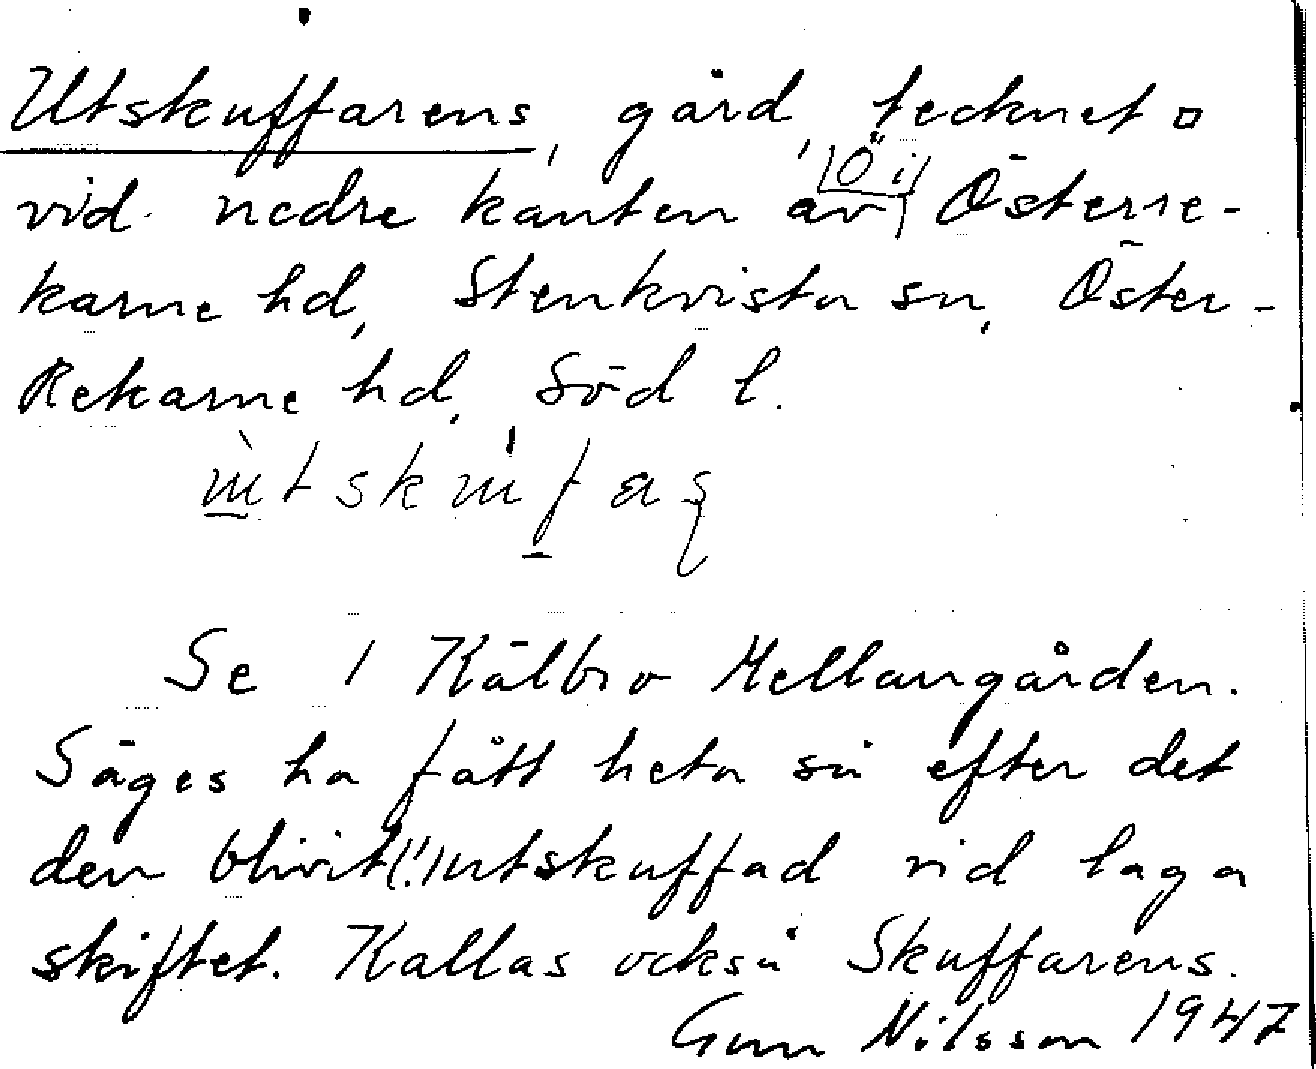 Utskuffarens, gård, tecknet □
vid nedre kanten av /Ö i/ Österre-
karne hd, Stenkvista sn, Öster-
Rekarne hd, Söd l.
Se 1 Kälbro Mellangården.
Säges ha fått heta så efter det
den blivit(!) utskuffad vid laga
skiftet. Kallas också Skuffarens.
Gun Nilsson 1947